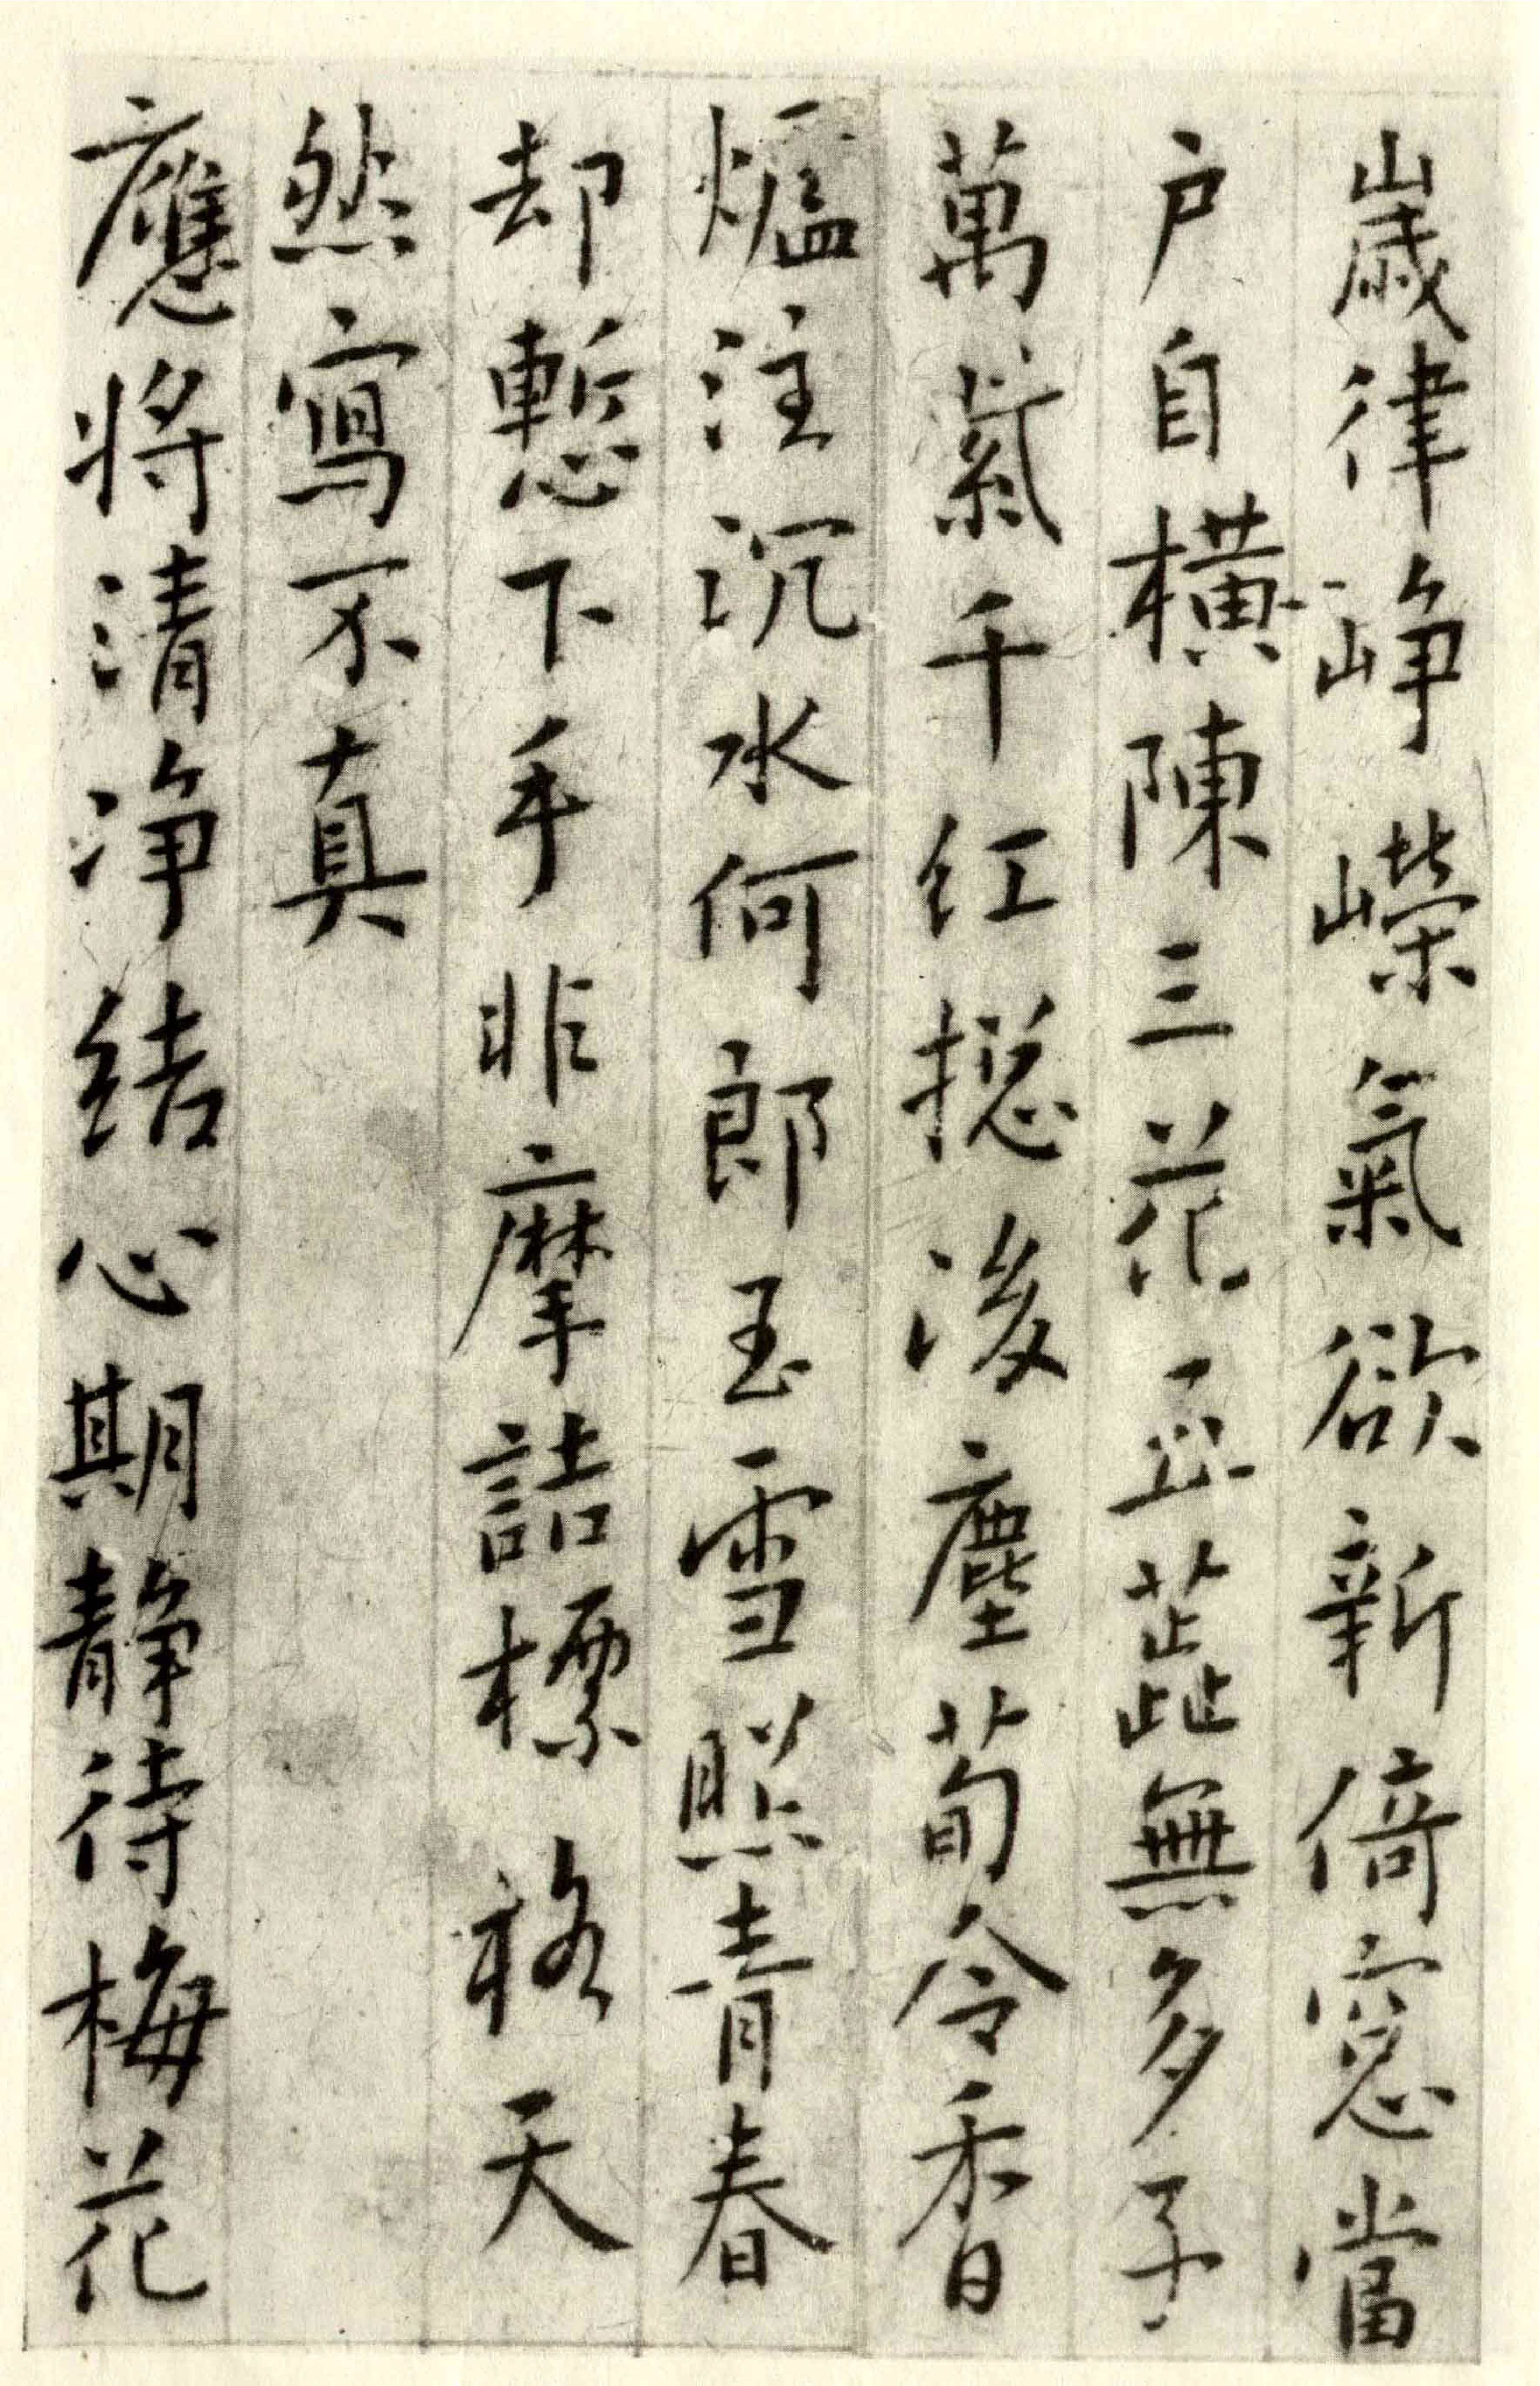 歲律崢嶸氣欲新倚窓當
户自橫陳三花五蕋無多子
萬紫千红揔後塵荀令香
爐注沉水何郎玉雪照青春
却慙下手非摩詰標格天
然寫不真
應將清淨結心期靜待梅花